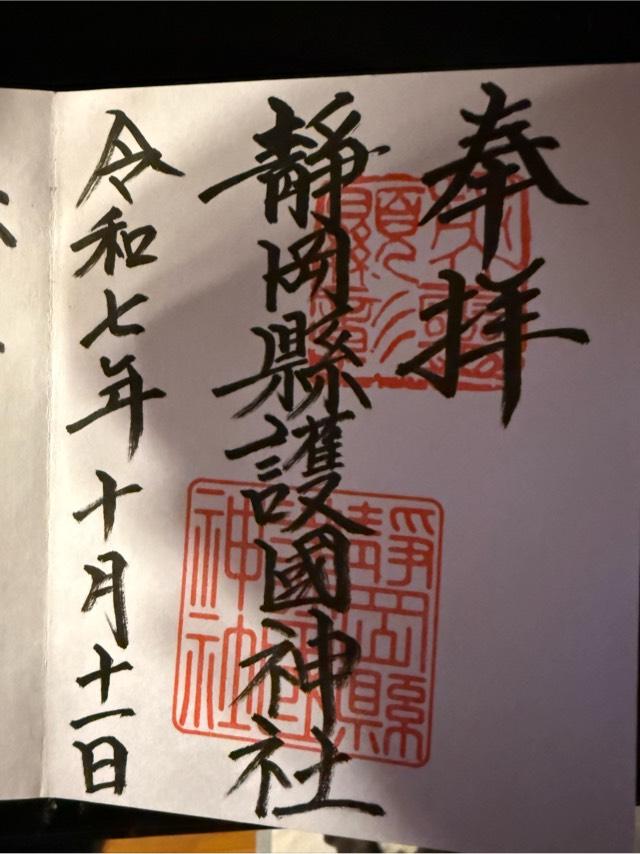 奉拝
靜岡縣護國神社
令和七年十月十一日
靜岡縣護國神社